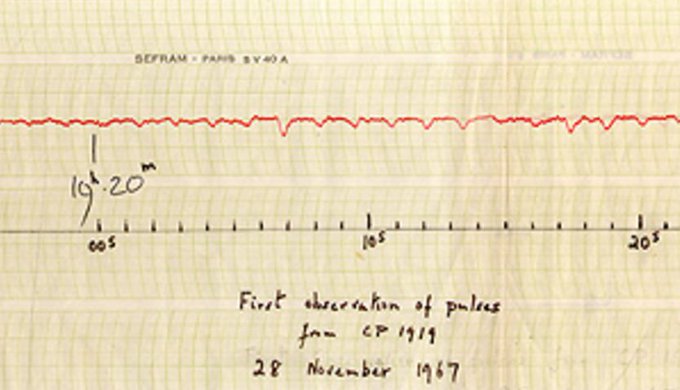 SEFRAM - PARIS S V 40 A
19h.20m
00s 10s 20s
First observation of pulses
from CP 1919
28 November 1967